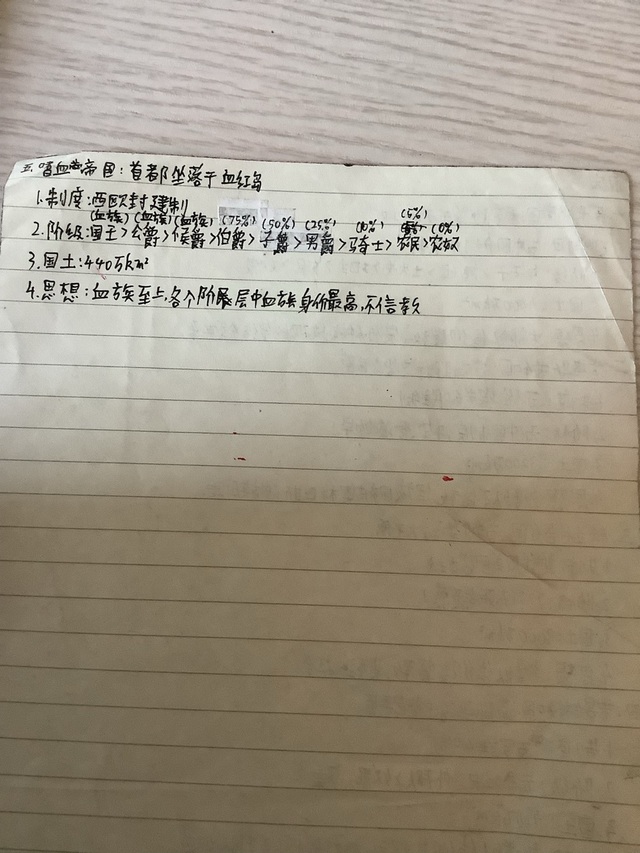 五.嗜血帝国:首都坐落于血红岛
1.制度:西欧封建制
(血族)(血族)(血族)(75%)(50%)(25%)(10%)(5%)
2.阶级:国王>公爵>侯爵>伯爵>子爵>男爵>骑士>农民>农奴(0%)
3.国土:440万km²
4.思想:血族至上,各个阶层中血族身份最高,不信教